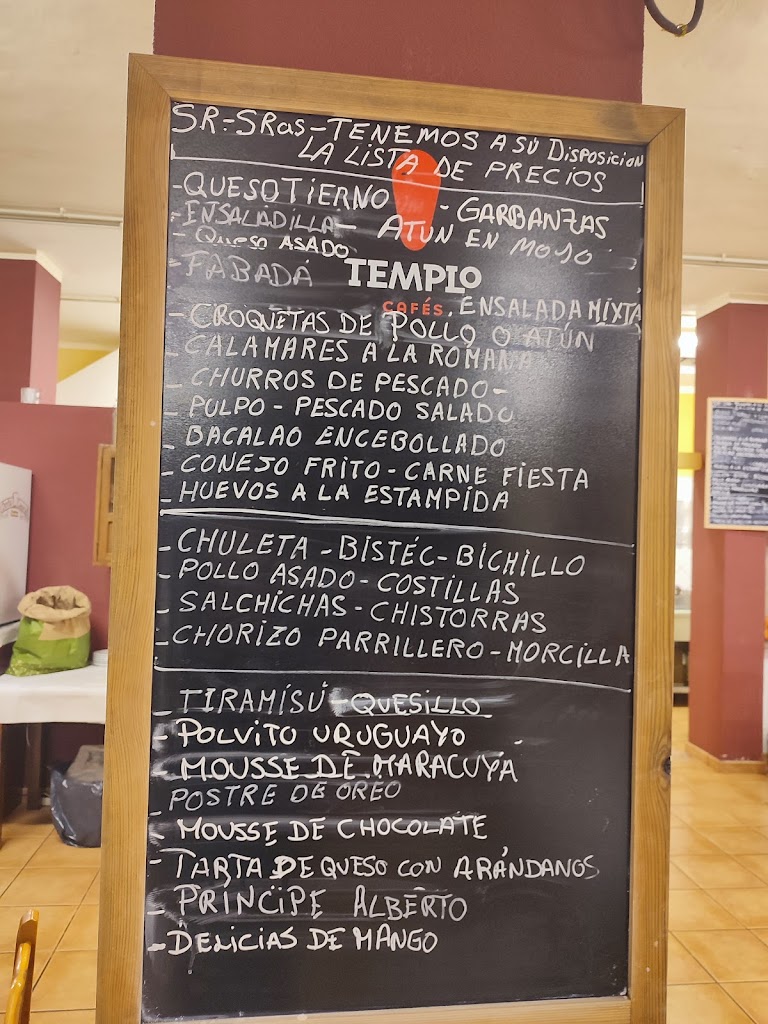 SR-SRas-TENEMOS A SU DISPOSICION
LA LISTA DE PRECIOS
-QUESO TIERNO - GARBANZAS
-ENSALADILLA - ATUN EN MOJO
- QUESO ASADO
-FABADA
TEMPLO
CAFÉS
. ENSALADA MIXTA
- CROQUETAS DE POLLO O ATÚN
- CALAMARES A LA ROMANA
- CHURROS DE PESCADO-
- PULPO - PESCADO SALADO
- BACALAO ENCEBOLLADO
- CONEJO FRITO - CARNE FIESTA
- HUEVOS A LA ESTAMPIDA
- CHULETA - BISTÉC - BICHILLO
- POLLO ASADO - COSTILLAS
- SALCHICHAS - CHISTORRAS
- CHORIZO PARRILLERO - MORCILLA
- TIRAMÍSÚ - QUESILLO
- POLVITO URUGUAYO
- MOUSSE DE MARACUYÁ
- POSTRE DE OREO
- MOUSSE DE CHOCOLATE
- TARTA DE QUESO CON ARÁNDANOS
- PRÍNCIPE ALBERTO
- DELICIAS DE MANGO